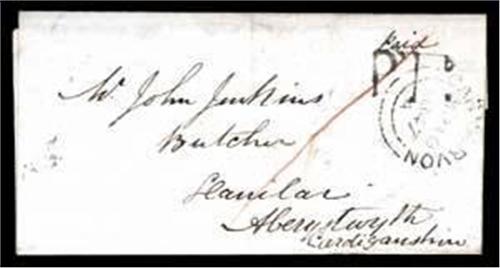 Paid
P1
Mr. John Jenkins
Butcher
Llanilar
Aberystwyth
Cardiganshire
RVON